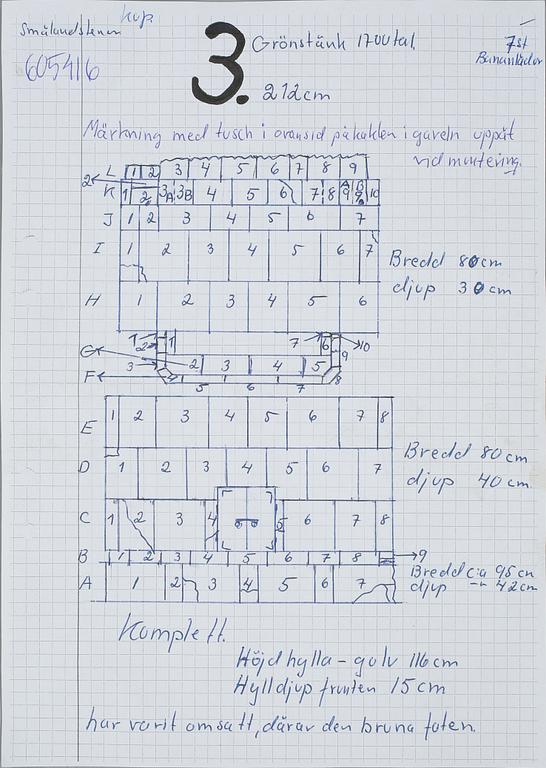 Smålandstenar
köp
605416
3.
Grönstänk 1700tal.
212cm
7st
Bananlådor
Märkning med tusch i ovansid på kaklen i gaveln uppåt
vid montering.
L 1 2 3 4 5 6 7 8 9
2
K 1 2 3A 3B 4 5 6 7 8 9A 9B 10
J 1 2 3 4 5 6 7
I 1 2 3 4 5 6 7
Bredd 80cm
djup 30cm
H 1 2 3 4 5 6
1 1 7 6 10
2 9
G 2 3 4 5
3
F 4 8
5 6 7
E 1 2 3 4 5 6 7 8
Bredd 80cm
djup 40cm
D 1 2 3 4 5 6 7
C 1 2 3 4 5 6 7 8
B 1 2 3 4 5 6 7 8 9
A 1 2 3 4 5 6 7
Bredd c:a 95cm
djup -"- 42cm
Komplett.
Höjd hylla - golv 116cm
Hylldjup fronten 15cm
har varit omsatt, därav den bruna foten.